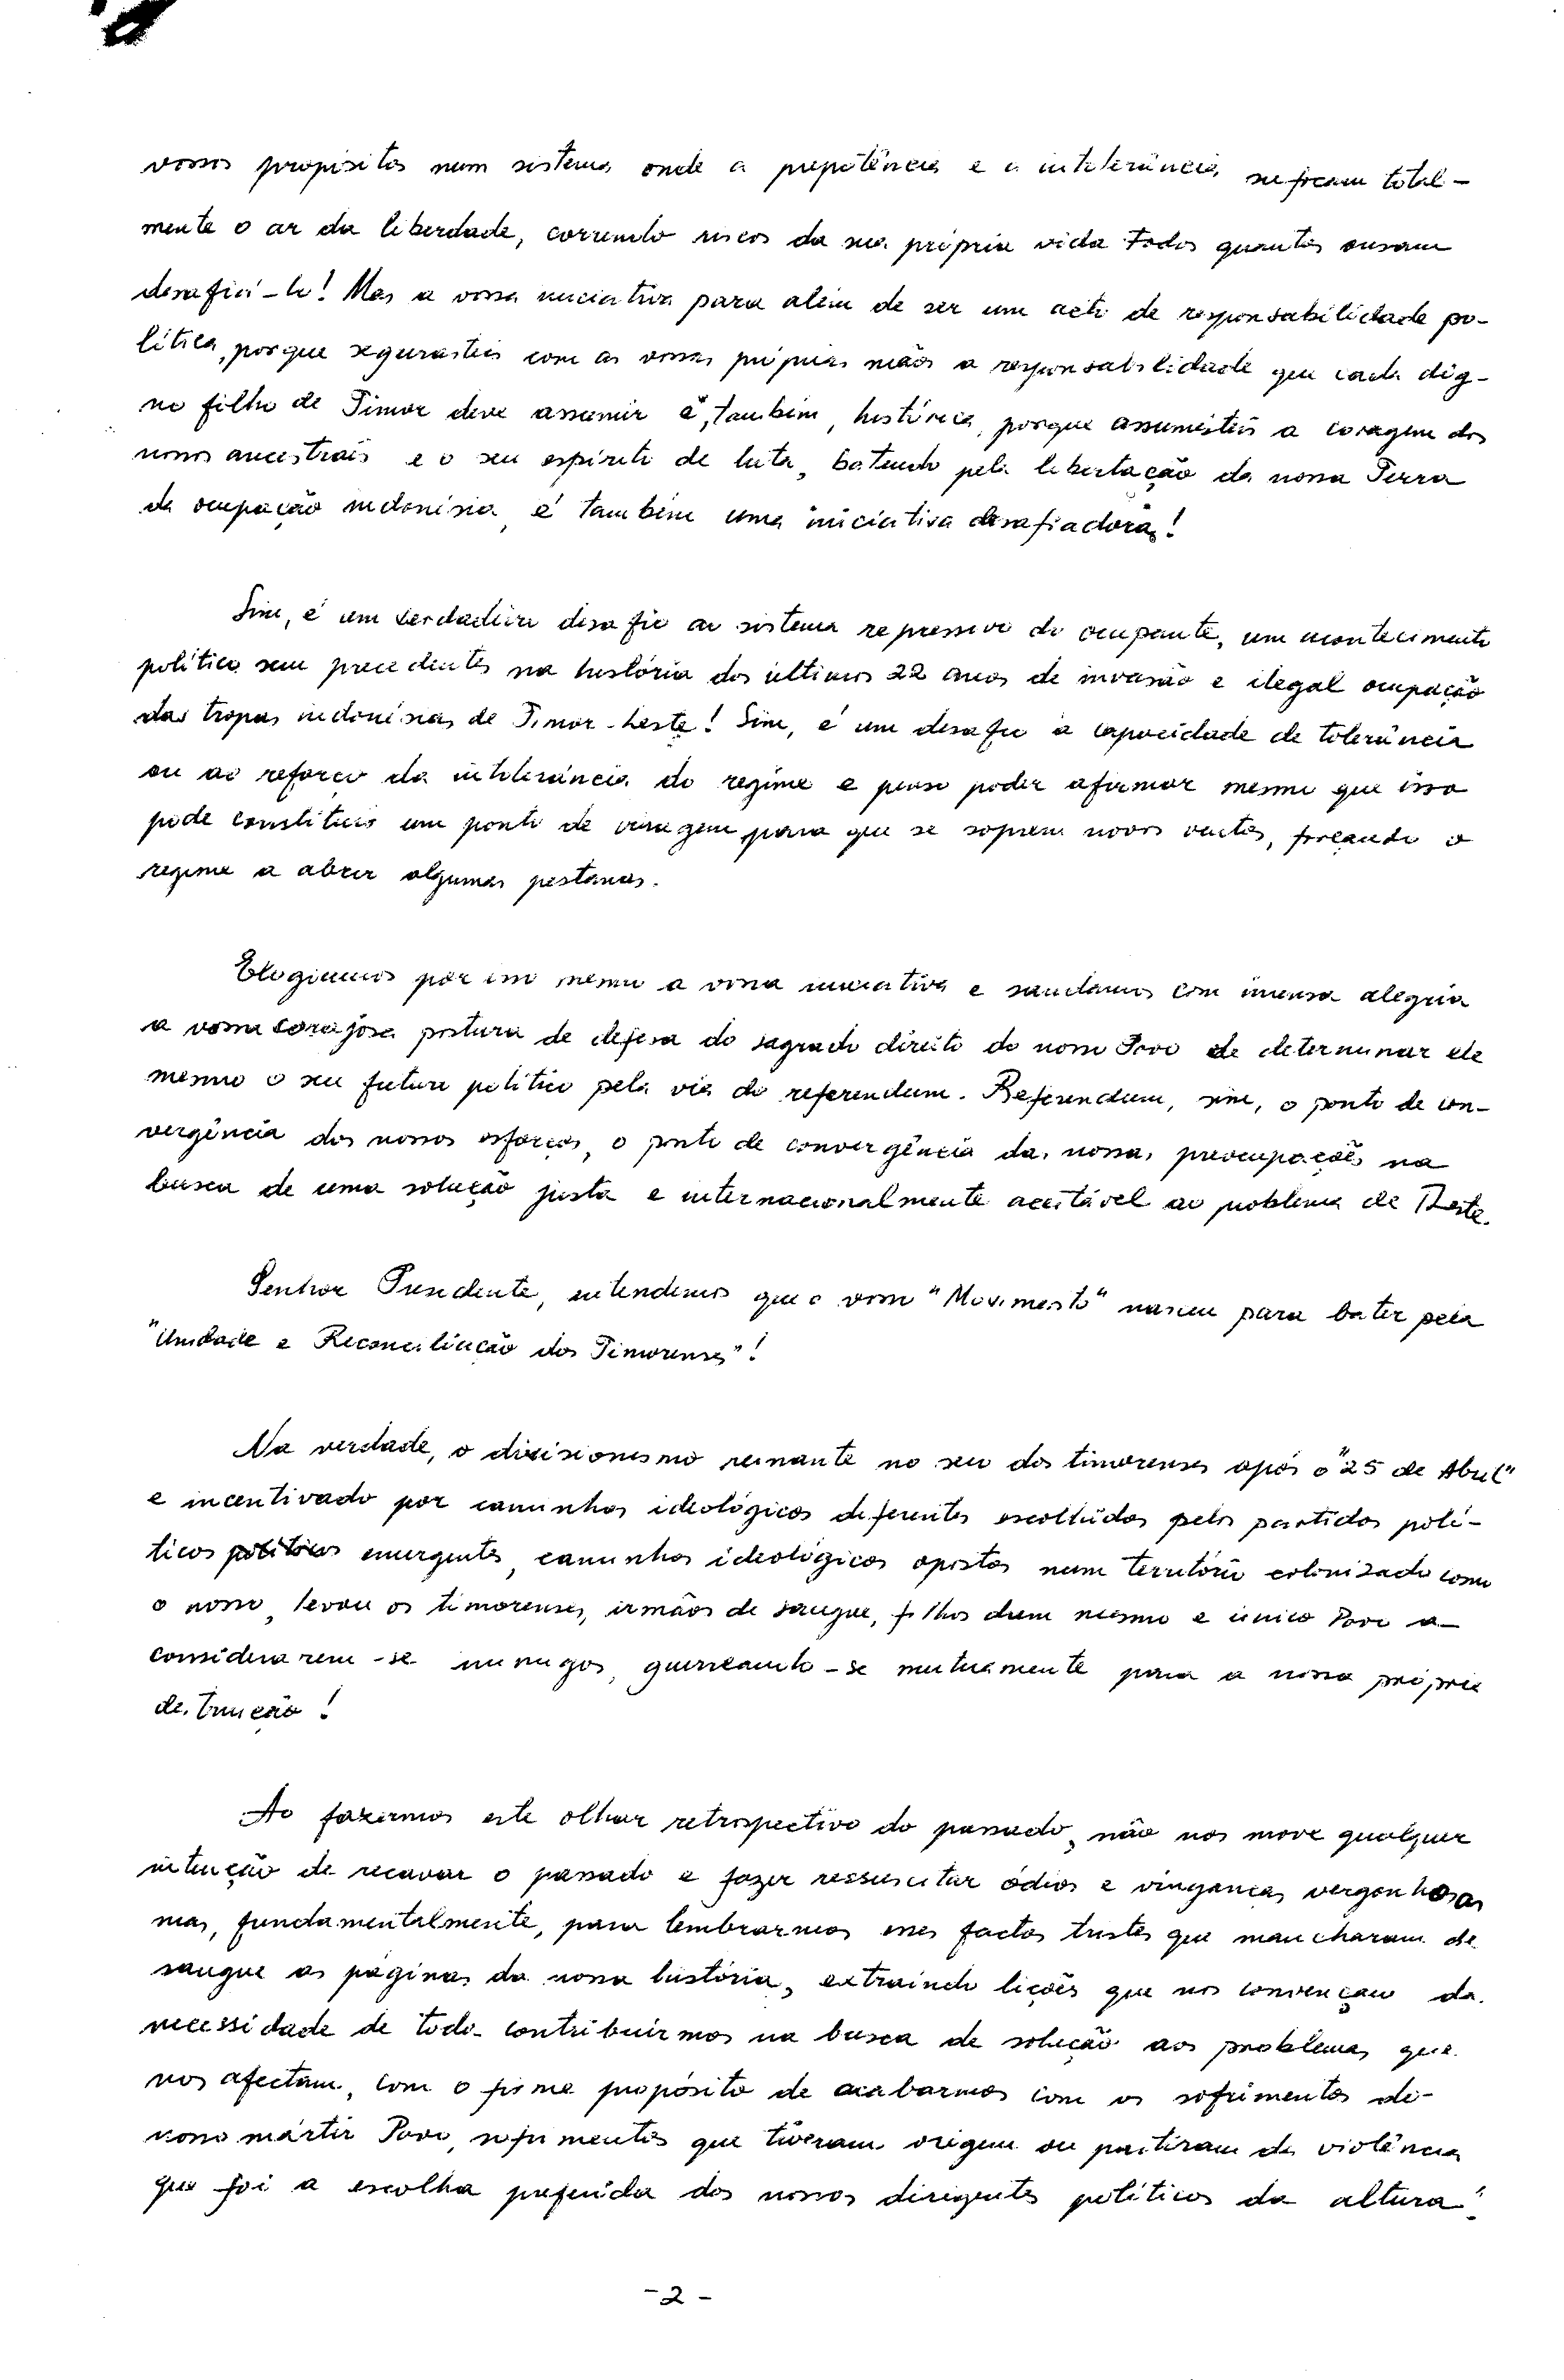 vossos propósitos num sistema onde a prepotência e a intolerância sufocam total-
mente o ar da liberdade, correndo riscos da sua própria vida todos quantos ousam
desafiá-lo! Mas a vossa iniciativa para além de ser um acto de responsabilidade po-
lítica, porque segurasteis com as vossas próprias mãos a responsabilidade que cada dig-
no filho de Timor deve assumir é, também, histórica, porque assumisteis a coragem dos
nossos ancestrais e o seu espírito de luta, batendo pela libertação da nossa Terra
da ocupação indonésia, é também uma iniciativa desafiadora!
Sim, é um verdadeiro desafio ao sistema repressivo do ocupante, um acontecimento
político sem precedentes na história dos últimos 22 anos de invasão e ilegal ocupação
das tropas indonésias de Timor-Leste! Sim, é um desafio à capacidade de tolerância
ou ao reforço da intolerância do regime e penso poder afirmar mesmo que isso
pode constituir um ponto de viragem para que se soprem novos ventos, forçando o
regime a abrir algumas pestanas.
Elogiamos por isso mesmo a vossa iniciativa e saudamos com imensa alegria
a vossa corajosa postura de defesa do sagrado direito do nosso Povo de determinar ele
mesmo o seu futuro político pela via do referendum. Referendum, sim, o ponto de con-
vergência dos nossos esforços, o ponto de convergência das nossas preocupações na
busca de uma solução justa e internacionalmente aceitável ao problema de TLeste.
Senhor Presidente, entendemos que o vosso "Movimento" nasceu para bater pela
"Unidade e Reconciliação dos Timorenses"!
Na verdade, o divisionismo reinante no seio dos timorenses após o "25 de Abril"
e incentivado por caminhos ideológicos diferentes escolhidos pelos partidos polí-
ticos políticos emergentes, caminhos ideológicos opostos num território colonizado como
o nosso, levou os timorenses, irmãos de sangue, filhos dum mesmo e único Povo a
considerarem-se inimigos, guerreando-se mutuamente para a nossa própria
destruição!
Ao fazermos este olhar retrospectivo do passado, não nos move qualquer
intenção de recavar o passado e fazer ressuscitar ódios e vinganças vergonhosas
mas, fundamentalmente, para lembrarmos esses factos tristes que mancharam de
sangue as páginas da nossa história, extraindo lições que nos convençam da
necessidade de todos contribuirmos na busca de solução aos problemas que
nos afectam, com o firme propósito de acabarmos com os sofrimentos do
nosso mártir Povo, sofrimentos que tiveram origem ou partiram da violência
que foi a escolha preferida dos nossos dirigentes políticos da altura!
-2-